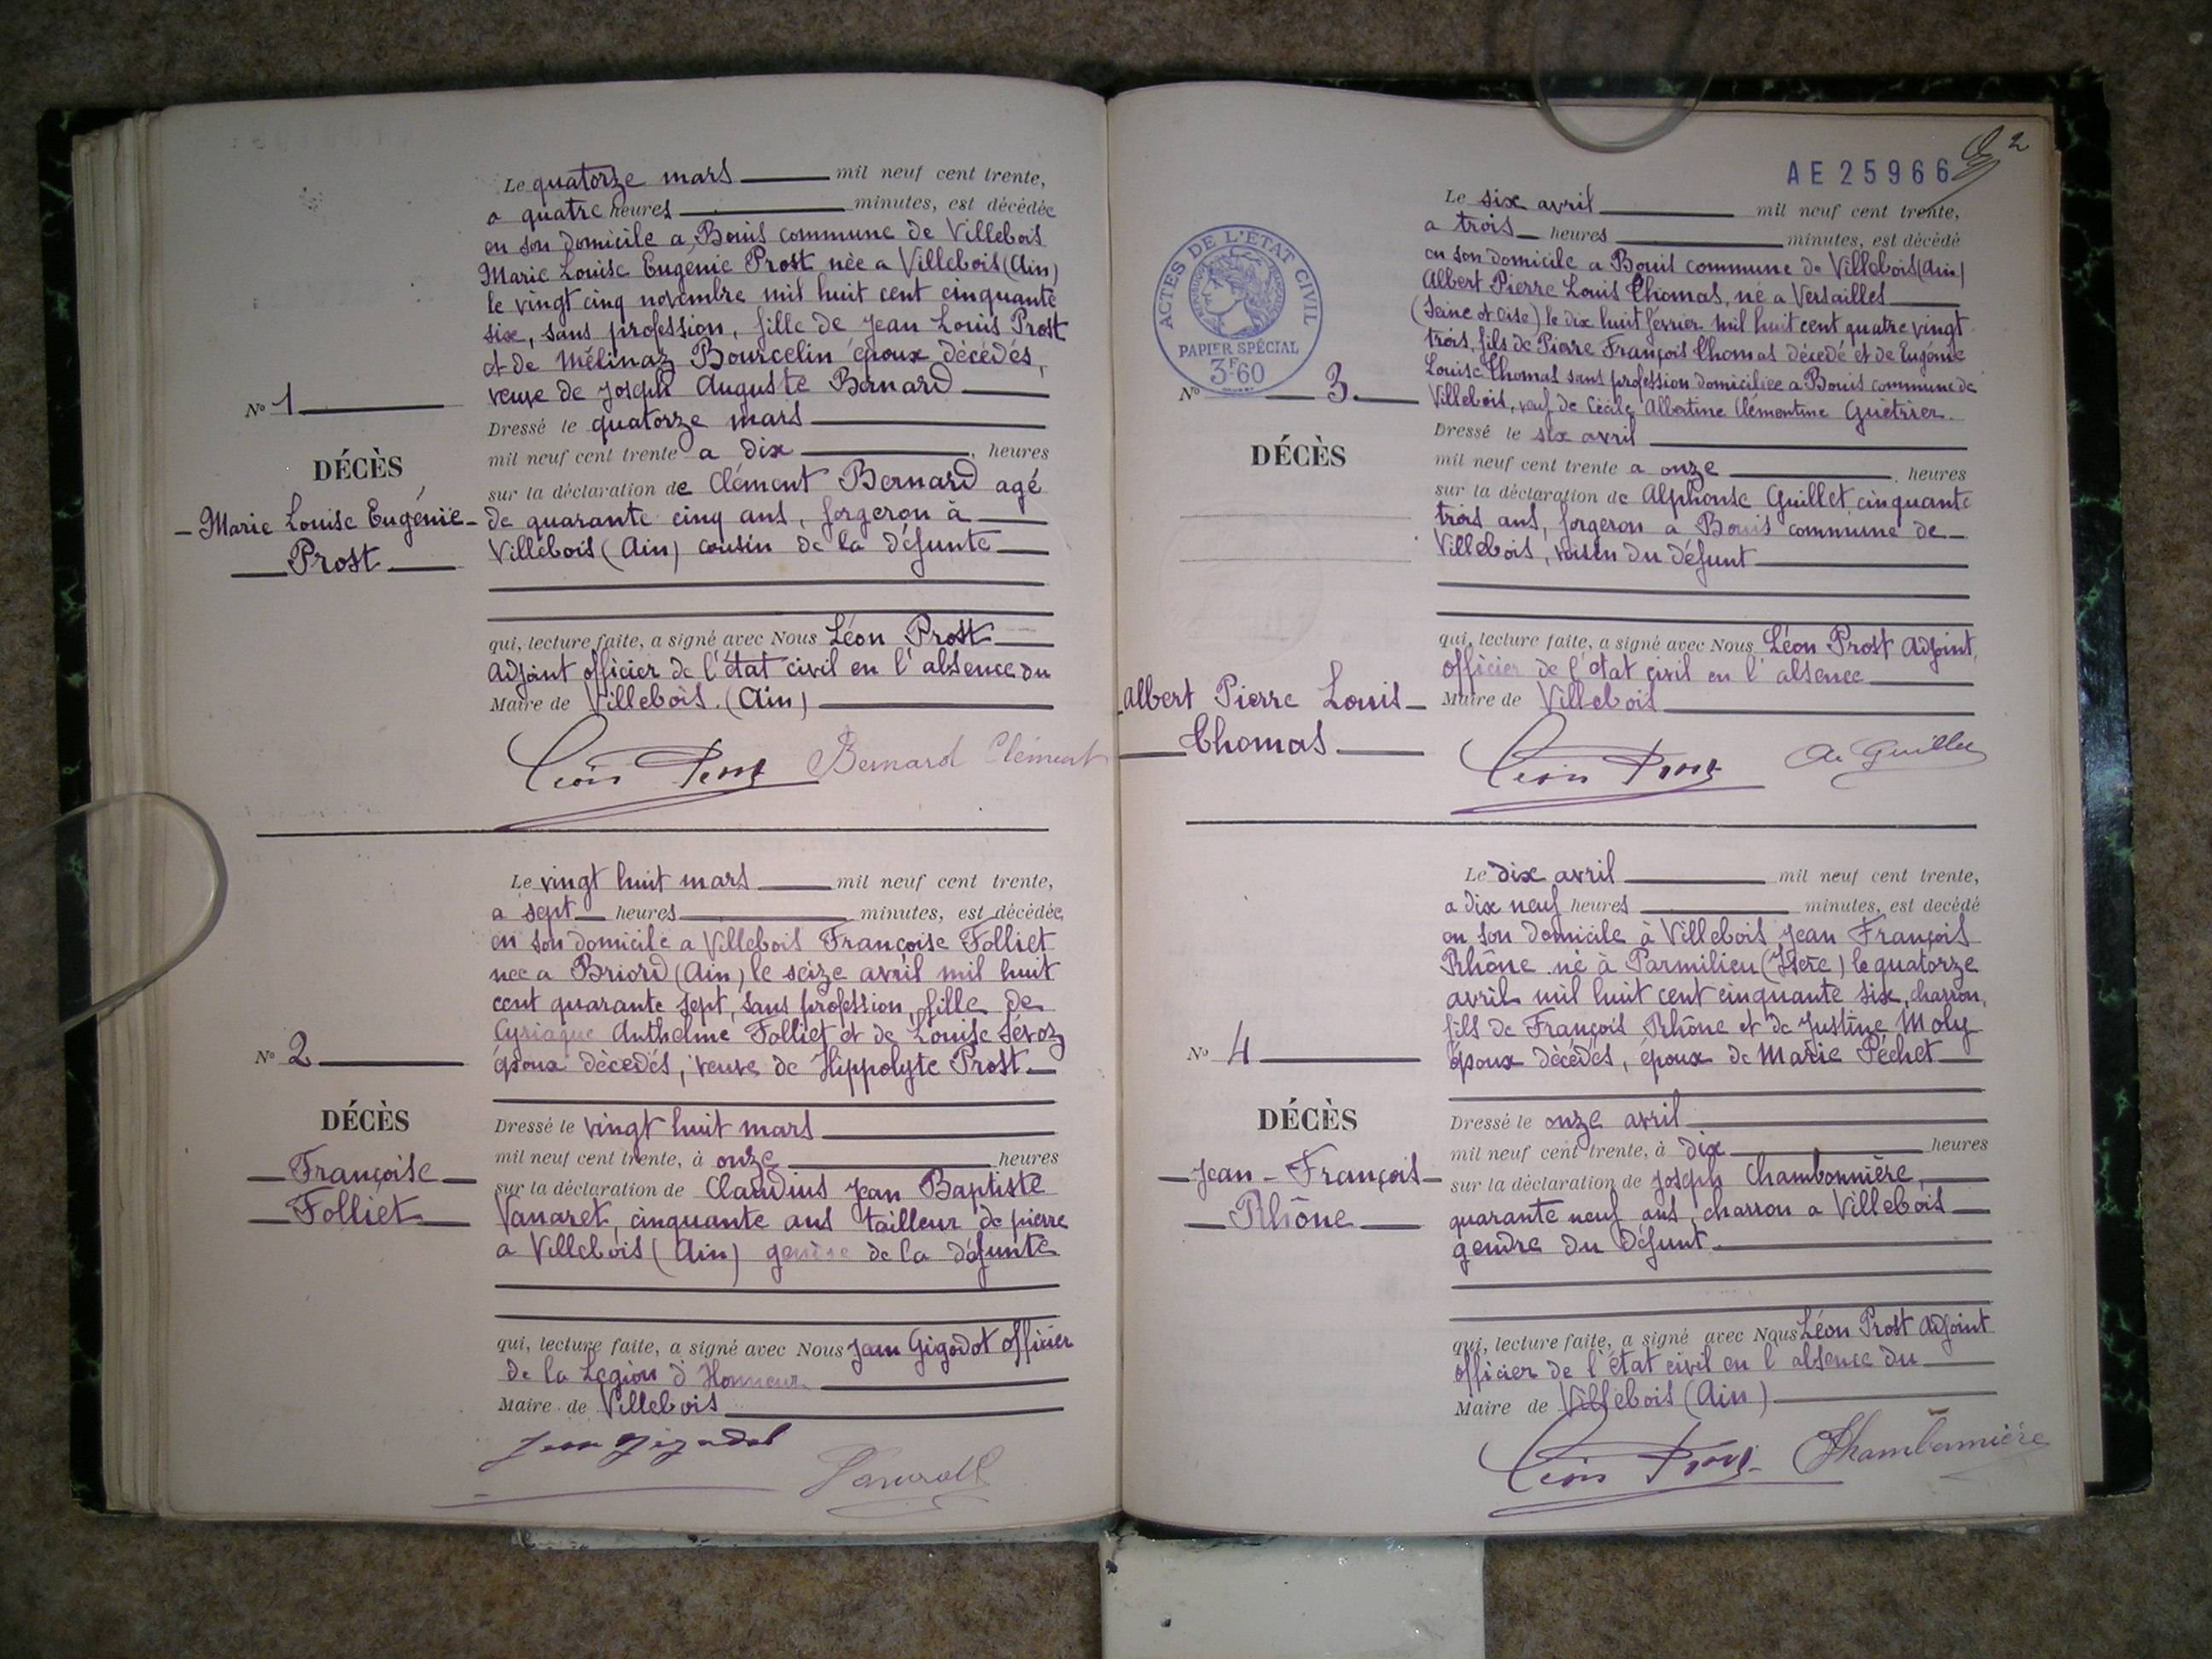 Le quatorze mars mil neuf cent trente,
a quatre heures minutes, est décédée
en son domicile a Bouis commune de Villebois
Marie Louise Eugénie Prost née a Villebois (Ain)
le vingt cinq novembre mil huit cent cinquante
six, sans profession, fille de Jean Louis Prost
et de Mélinaz Bourcelin époux décédés,
veuve de Joseph Auguste Bernard
Nº 1
Dressé le quatorze mars
mil neuf cent trente a dix heures
DÉCÈS
sur la déclaration de Clément Bernard agé
Marie Louise Eugénie
de quarante cinq ans, forgeron à
Prost
Villebois (Ain) cousin de la défunte
qui, lecture faite, a signé avec Nous Léon Prost
adjoint officier de l'état civil en l'absence du
Maire de Villebois. (Ain)
Léon Prost Bernard Clément
Le vingt huit mars mil neuf cent trente,
a sept heures minutes, est décédée
en son domicile a Villebois Françoise Folliet
nee a Briord (Ain) le seize avril mil huit
cent quarante sept, sans profession, fille de
Cyriaque Anthelme Folliet et de Louise Sévoz
Nº 2
époux décédés, veuve de Hippolyte Prost.
DÉCÈS
Dressé le vingt huit mars
mil neuf cent trente, à onze heures
Françoise
sur la déclaration de Claudius Jean Baptiste
Folliet
Vanaret, cinquante ans tailleur de pierre
a Villebois (Ain) gendre de la défunte
qui, lecture faite, a signé avec Nous Jean Gigodot officier
de la Legion d'Honneur
Maire de Villebois
Jean Gigodot
AE 25966
2
Le six avril mil neuf cent trente,
a trois heures minutes, est décédé
en son domicile a Bouis commune de Villebois (Ain)
Albert Pierre Louis Thomas, né a Versailles
(Seine et Oise) le dix huit février mil huit cent quatre vingt
trois, fils de Pierre François Thomas décedé et de Eugénie
Louise Thomas sans profession domiciliée a Bouis commune de
Villebois, veuf de Cécile Albertine Clémentine Guétrier.
ACTES DE L'ÉTAT CIVIL
PAPIER SPÉCIAL
3F60
Nº 3
Dressé le six avril
DÉCÈS
mil neuf cent trente a onze heures
sur la déclaration de Alphonse Guillet cinquante
trois ans, forgeron a Bouis commune de
Villebois, voisin du défunt
qui, lecture faite, a signé avec Nous Léon Prost adjoint,
officier de l'état civil en l'absence
Albert Pierre Louis
Maire de Villebois
Thomas
Léon Prost
Le dix avril mil neuf cent trente,
a dix neuf heures minutes, est decédé
en son domicile à Villebois Jean François
Rhône né à Parmilieu (Isère) le quatorze
avril mil huit cent cinquante six, charron,
fils de François Rhône et de Justine Moly
Nº 4
époux décédés, époux de Marie Péchet
DÉCÈS
Dressé le onze avril
mil neuf cent trente, à dix heures
Jean-François
sur la déclaration de Joseph Chambonnière,
Rhône
quarante neuf ans, charron a Villebois
gendre du défunt
qui, lecture faite, a signé avec Nous Léon Prost adjoint
officier de l'état civil en l'absence du
Maire de Villebois (Ain)
Léon Prost Chambonnière